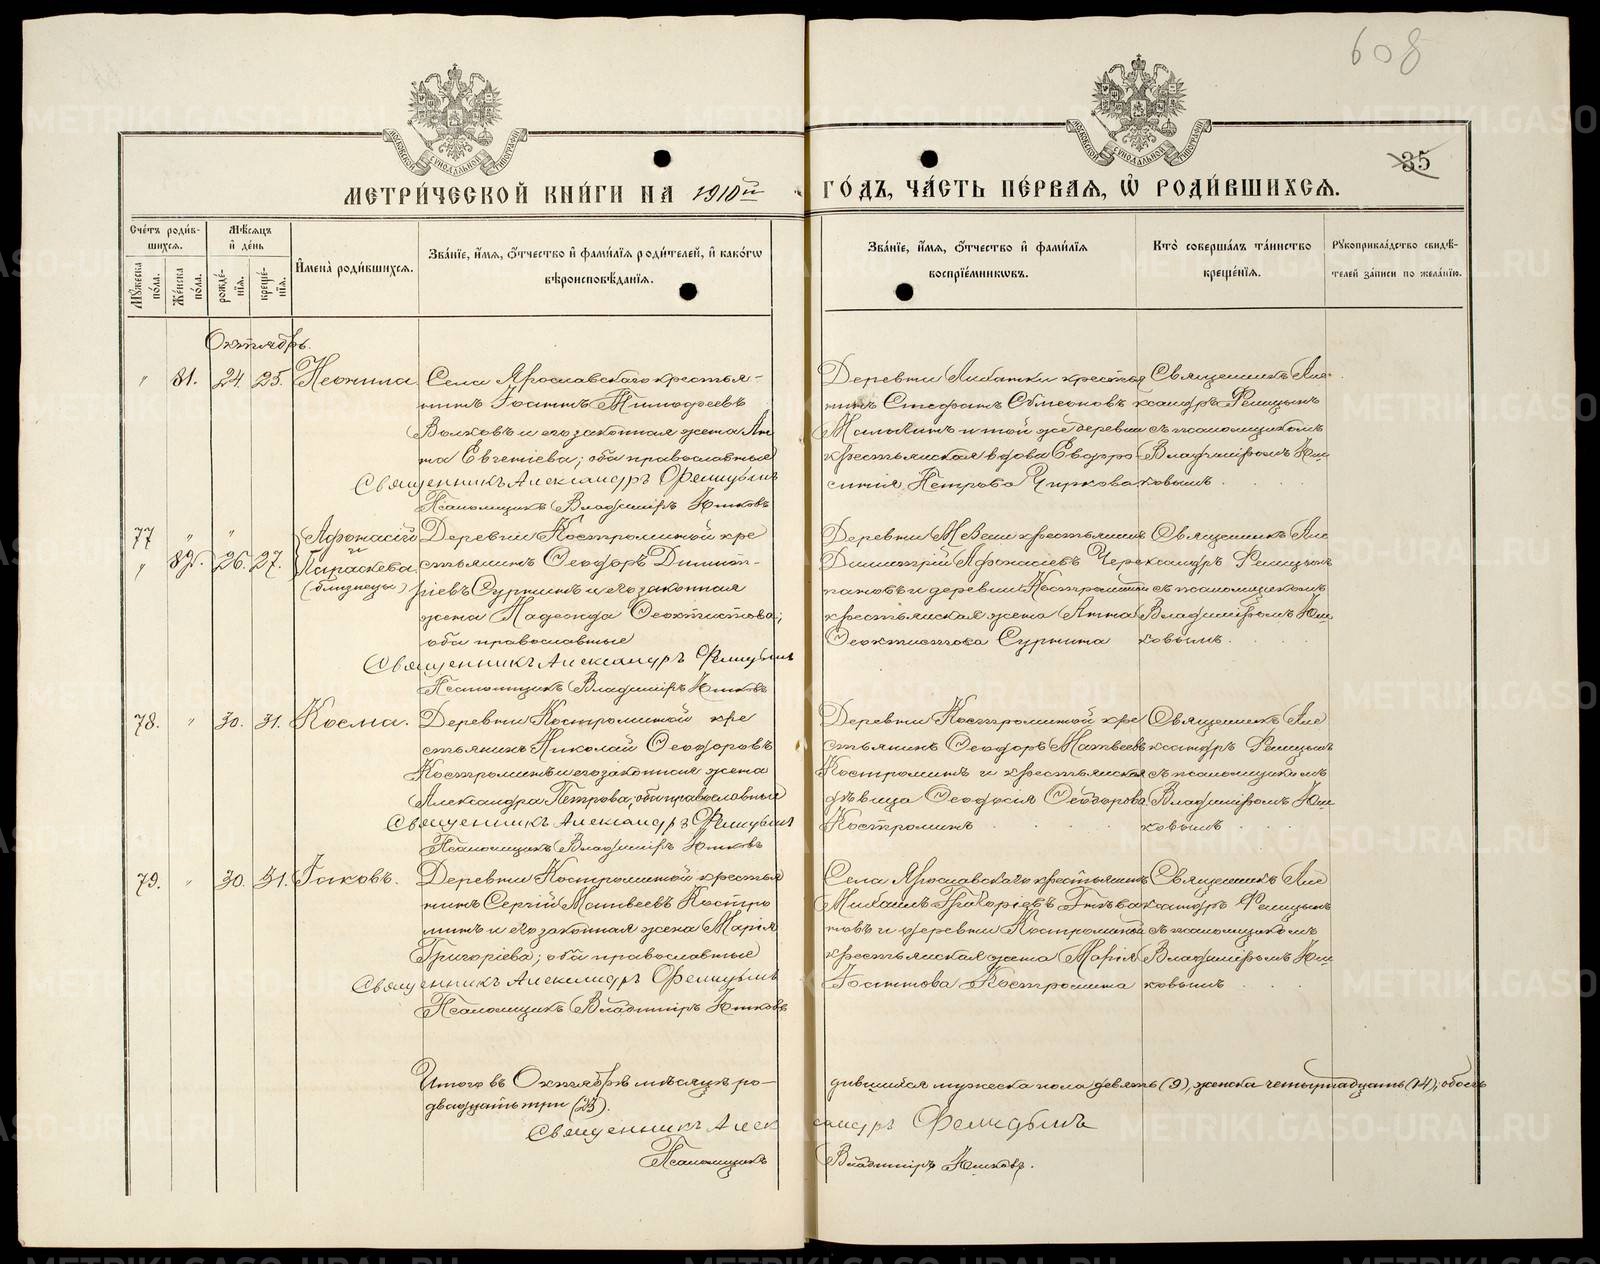 608
35
МОСКОВСКОЙ СѴНОДАЛЬНОЙ ТИПОГРАФІИ
МОСКОВСКОЙ СѴНОДАЛЬНОЙ ТИПОГРАФІИ
МЕТРИ́ЧЕСКОЙ КНИ́ГИ НА 1910й ГО́ДЪ, ЧА́СТЬ ПЕ́РВАЯ, Ѡ҆ РОДИ́ВШИХСЯ.
Сче́тъ роди́вшихся.
Мꙋ́жеска по́ла.
Же́нска по́ла.
Мѣ́сяцъ и҆ де́нь
рожде́нїя.
креще́нїя.
И҆мена̀ роди́вшихся.
Зва́нїе, и҆́мя, ѻ҆́тчество и҆ фами́лїя роди́телей, и҆ како́гѡ вѣроисповѣ́данїя.
Зва́нїе, и҆́мя, ѻ҆́тчество и҆ фами́лїя воспрїе́мникѡвъ.
Кто̀ соверша́лъ та́инство креще́нїя.
Рꙋкоприкла́дство свидѣ́телей за́писи по жела́нїю.
Октябрь.
" 81. 24. 25. Неонила
Села Ярославскаго крестья-
нинъ Іоаннъ Тимофеевъ
Волковъ и его законная жена Ан
на Евгеніева; оба православные
Священникъ Александръ Фелицынъ
Псаломщикъ Владиміръ Юшковъ
Деревни крестья
нинъ Стефанъ Сѵмеоновъ
и той же деревни
крестьянская вдова Евдоро-
Петрова Чиркова
Священникъ Але
ксандръ Фелицынъ
съ псаломщикомъ
Владиміромъ Юш
ковымъ.
77 " " Аѳонасій
и
" 82. 26. 27. Параскева
(близнецы)
Деревни Костроминой кре
стьянинъ Ѳеодоръ Димит-
ріевъ Сурнинъ и его законная
жена Надежда Ѳеоктистова;
оба православные
Священникъ Александръ Фелицынъ
Псаломщикъ Владиміръ Юшковъ
Деревни крестьянинъ
Димитрій Аѳонасіевъ Чере
пановъ и деревни Костромин
крестьянская жена Анна
Ѳеоктистова Сурнина
Священникъ Але
ксандръ Фелицынъ
съ псаломщикомъ
Владиміромъ Юш
ковымъ.
78. " 30. 31. Косма.
Деревни Костроминой кре
стьянинъ Николай Ѳеодоровъ
Костроминъ и его законная жена
Александра Петрова; оба православные
Священникъ Александръ Фелицынъ
Псаломщикъ Владиміръ Юшковъ
Деревни Костроминой кре
стьянинъ Ѳеодоръ Матвеевъ
Костроминъ и крестьянская
дѣвица Ѳеодосія Ѳеодорова
Костроминъ
Священникъ Але
ксандръ Фелицынъ
съ псаломщикомъ
Владиміромъ Юш
ковымъ
79. " 30. 31. Іаковъ.
Деревни Костроминой крестья
нинъ Сергій Матвеевъ Костро
минъ и его законная жена Марія
Григоріева; оба православные
Священникъ Александръ Фелицынъ
Псаломщикъ Владиміръ Юшковъ
Села Ярославскаго крестьянинъ
Михаилъ Григоріевъ Гнѣва
новъ и деревни Костроминой
крестьянская жена Марія
Іоаннова Костромина
Священникъ Але
ксандръ Фелицынъ
съ псаломщикомъ
Владиміромъ Юш
ковымъ
Итого въ Октябрѣ мѣсяцѣ ро-
дившихся мужеска пола девять (9), женска четырнадцать (14); обоего
двадцать три (23).
Священникъ Александръ Фелицынъ
Псаломщикъ Владиміръ Юшковъ.
METRIKI.GASO-URAL.RU